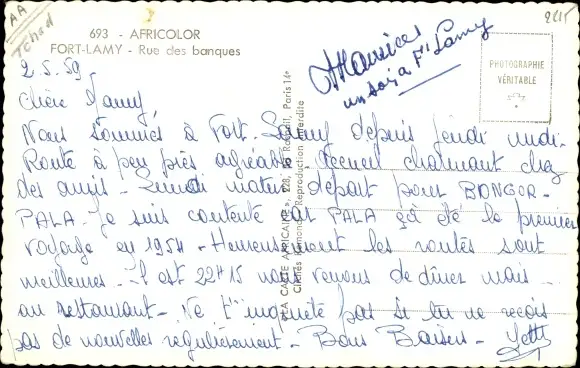 AA
Tchad
2215
693 - AFRICOLOR
FORT-LAMY - Rue des banques
PHOTOGRAPHIE
VÉRITABLE
un soir à Ft Lamy
2.5.59.
Chère Mamy,
Nous sommes à Fort-Lamy depuis jeudi midi.
Route à peu près agréable. Accueil charmant chez
des amis - Lundi matin départ pour BONGOR-
PALA. Je suis contente car PALA ça été le premier
voyage en 1954 - Heureusement les routes sont
meilleures - Il est 22H15 nous venons de dîner mais
au restaurant - Ne t'inquiète pas si tu ne reçois
pas de nouvelles regulièrement - Bons Baisers -
"LA CARTE AFRICAINE", Paris 14e
Reproduction interdite